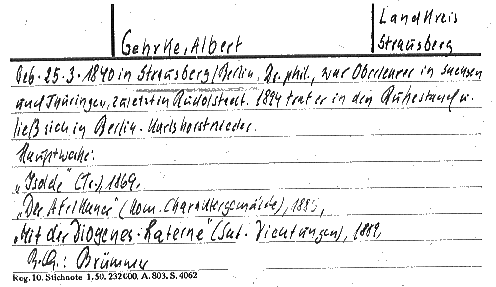 Landkreis
Gehrke, Albert Strausberg
Geb. 25.3.1840 in Strausberg/Berlin, Dr. phil., war Oberlehrer in Sachsen
und Thüringen, zuletzt in Rudolstadt. 1894 trat er in den Ruhestand u.
ließ sich in Berlin-Karlshorst nieder.
Hauptwerke:
„Isolde" (Tr.), 1869,
„Der Afrikaner" (Hum. Charaktergemälde), 1885,
„Mit der Diogenes-Laterne" (Sat. Dichtungen), 1889,
Brümmer
Reg. 10. Stichnote 1. 50. 232000. A. 803. S. 4062